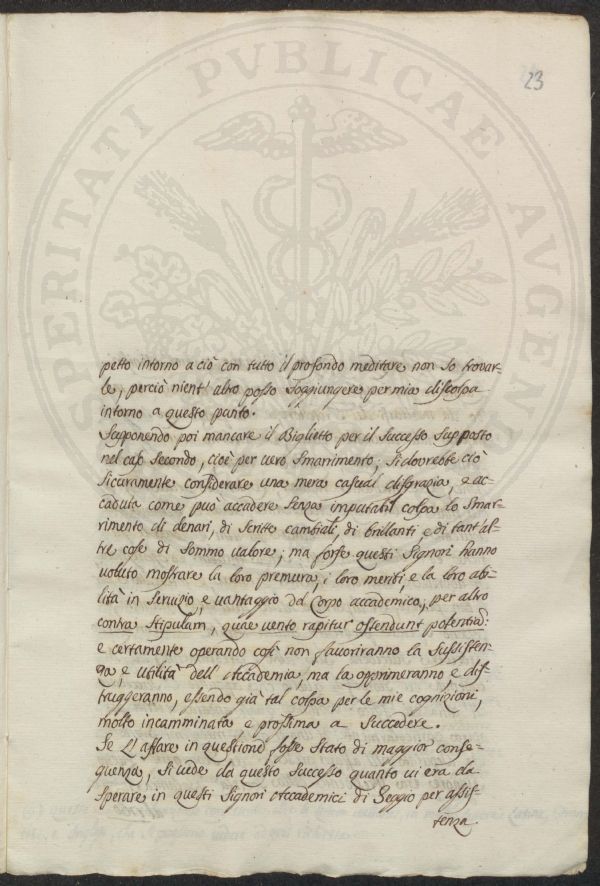 23
SPERITATI PVBLICAE AVGE
petto intorno a ciò con tutto il profondo meditare non so trovar-
le, perciò nient' altro posso soggiungere per mia discolpa
intorno a questo punto.
Supponendo poi mancare il Biglietto per il successo supposto
nel caso secondo, cioè per vero smarimento; si dovrebbe ciò
sicuramente considerare una mera casual disgrazia, e ac-
caduta come può accadere senza imputabil colpa lo smar-
rimento di denari, di scritte cambiali, di brillanti e di tant' al-
tre cose di sommo valore; ma forse questi Signori hanno
voluto mostrare la loro premura, i loro meriti, e la loro abi-
lità in servizio, e vantaggio del Corpo accademico, per altro
contra stipulam, quae vento rapitur ostendunt potentia:
e certamente operando così non favoriranno la sussisten-
za, e utilità dell' Accademia, ma la opprimeranno, e dis-
truggeranno, essendo già tal cosa per le mie cognizioni,
molto incamminata, e prossima a succedere.
Se l' affare in questione fosse stato di maggior conse-
quenza, si vede da questo successo quanto vi era da
sperare in questi Signori Accademici di Seggio per assis-
tenza